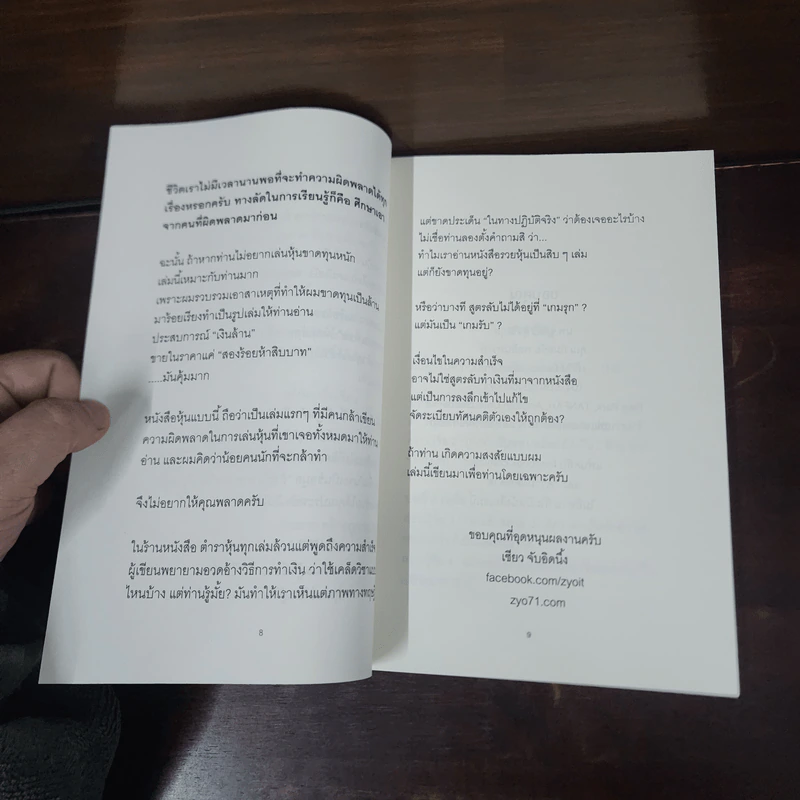 ชีวิตเราไม่มีเวลานานพอที่จะทำความผิดพลาดได้ทุก
เรื่องหรอกครับ ทางลัดในการเรียนรู้ก็คือ ศึกษาเอา
จากคนที่ผิดพลาดมาก่อน
ฉะนั้น ถ้าหากท่านไม่อยากเล่นหุ้นขาดทุนหนัก
เล่มนี้เหมาะกับท่านมาก
เพราะผมรวบรวมเอาสาเหตุที่ทำให้ผมขาดทุนเป็นล้าน
มาร้อยเรียงทำเป็นรูปเล่มให้ท่านอ่าน
ประสบการณ์ “เงินล้าน”
ขายในราคาแค่ “สองร้อยห้าสิบบาท”
.....มันคุ้มมาก
หนังสือหุ้นแบบนี้ ถือว่าเป็นเล่มแรกๆ ที่มีคนกล้าเขียน
ความผิดพลาดในการเล่นหุ้นที่เขาเจอทั้งหมดมาให้ท่าน
อ่าน และผมคิดว่าน้อยคนนักที่จะกล้าทำ
จึงไม่อยากให้คุณพลาดครับ
ในร้านหนังสือ ตำราหุ้นทุกเล่มล้วนแต่พูดถึงความสำเร็จ
ผู้เขียนพยายามอวดอ้างวิธีการทำเงิน ว่าใช้เคล็ดวิชาแบบ
ไหนบ้าง แต่ท่านรู้มั้ย? มันทำให้เราเห็นแต่ภาพทางทฤษฎี
8
แต่ขาดประเด็น “ในทางปฏิบัติจริง” ว่าต้องเจออะไรบ้าง
ไม่เชื่อท่านลองตั้งคำถามสิ ว่า...
ทำไมเราอ่านหนังสือรวยหุ้นเป็นสิบ ๆ เล่ม
แต่ก็ยังขาดทุนอยู่?
หรือว่าบางที สูตรลับไม่ได้อยู่ที่ “เกมรุก” ?
แต่มันเป็น “เกมรับ” ?
เงื่อนไขในความสำเร็จ
อาจไม่ใช่สูตรลับทำเงินที่มาจากหนังสือ
แต่เป็นการลงลึกเข้าไปแก้ไข
จัดระเบียบทัศนคติตัวเองให้ถูกต้อง?
ถ้าท่าน เกิดความสงสัยแบบผม
เล่มนี้เขียนมาเพื่อท่านโดยเฉพาะครับ
ขอบคุณที่อุดหนุนผลงานครับ
เซียว จับอิดนึ้ง
facebook.com/zyoit
zyo71.com
9